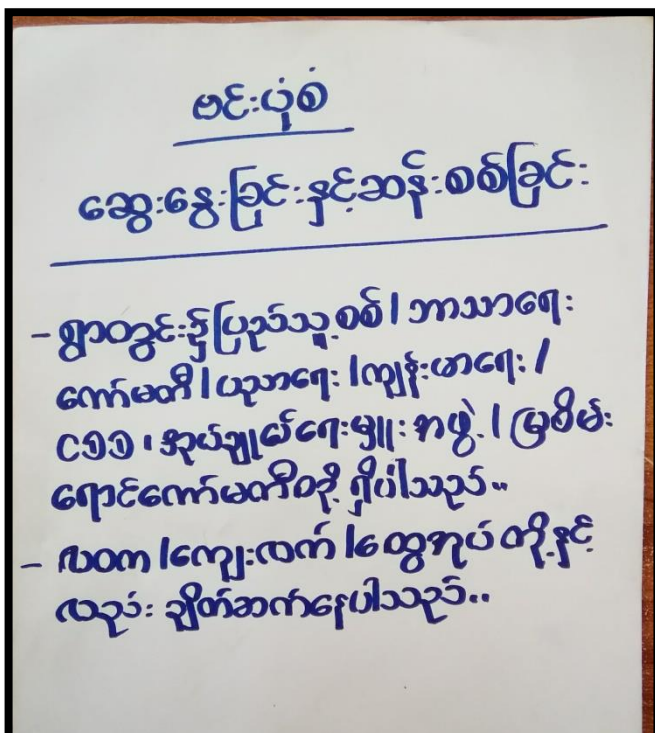 ဗင်းပုံစံ
ဆွေးနွေးခြင်းနှင့်ဆန်းစစ်ခြင်း
- ရွာတွင်း၌ ပြည်သူ့စစ် / ဘာသာရေး
ကော်မတီ / ပညာရေး / ကျန်းမာရေး /
၎၁၁ ၊ အုပ်ချုပ်ရေးမှူး အဖွဲ့ / မြစိမ်း
ရောင်ကော်မတီတို့ ရှိပါသည်..
- လ၀က / ကျေးလက် / ထွေအုပ် တို့နှင့်
လည်း ချိတ်ဆက်နေပါသည်..